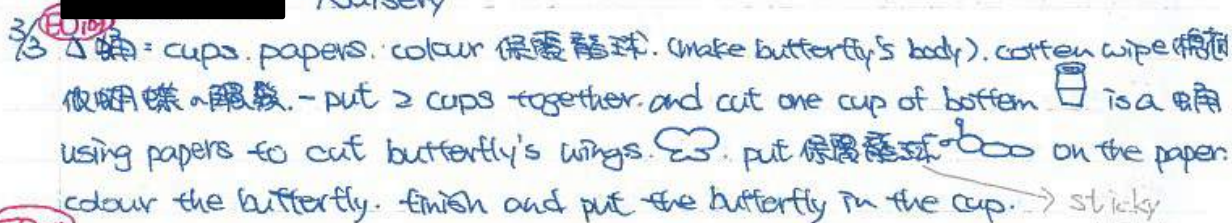 Nursery
3/3 蛹 = cups. papers. colour 保麗龍球. (make butterfly's body). cotten wipe (棉花
做蝴蝶的觸鬚. - put 2 cups together. and cut one cup of bottem is a 蛹
using papers to cut butterfly's wings. put 保麗龍球 on the paper.
colour the butterfly. finish and put the butterfly in the cup. → sticky